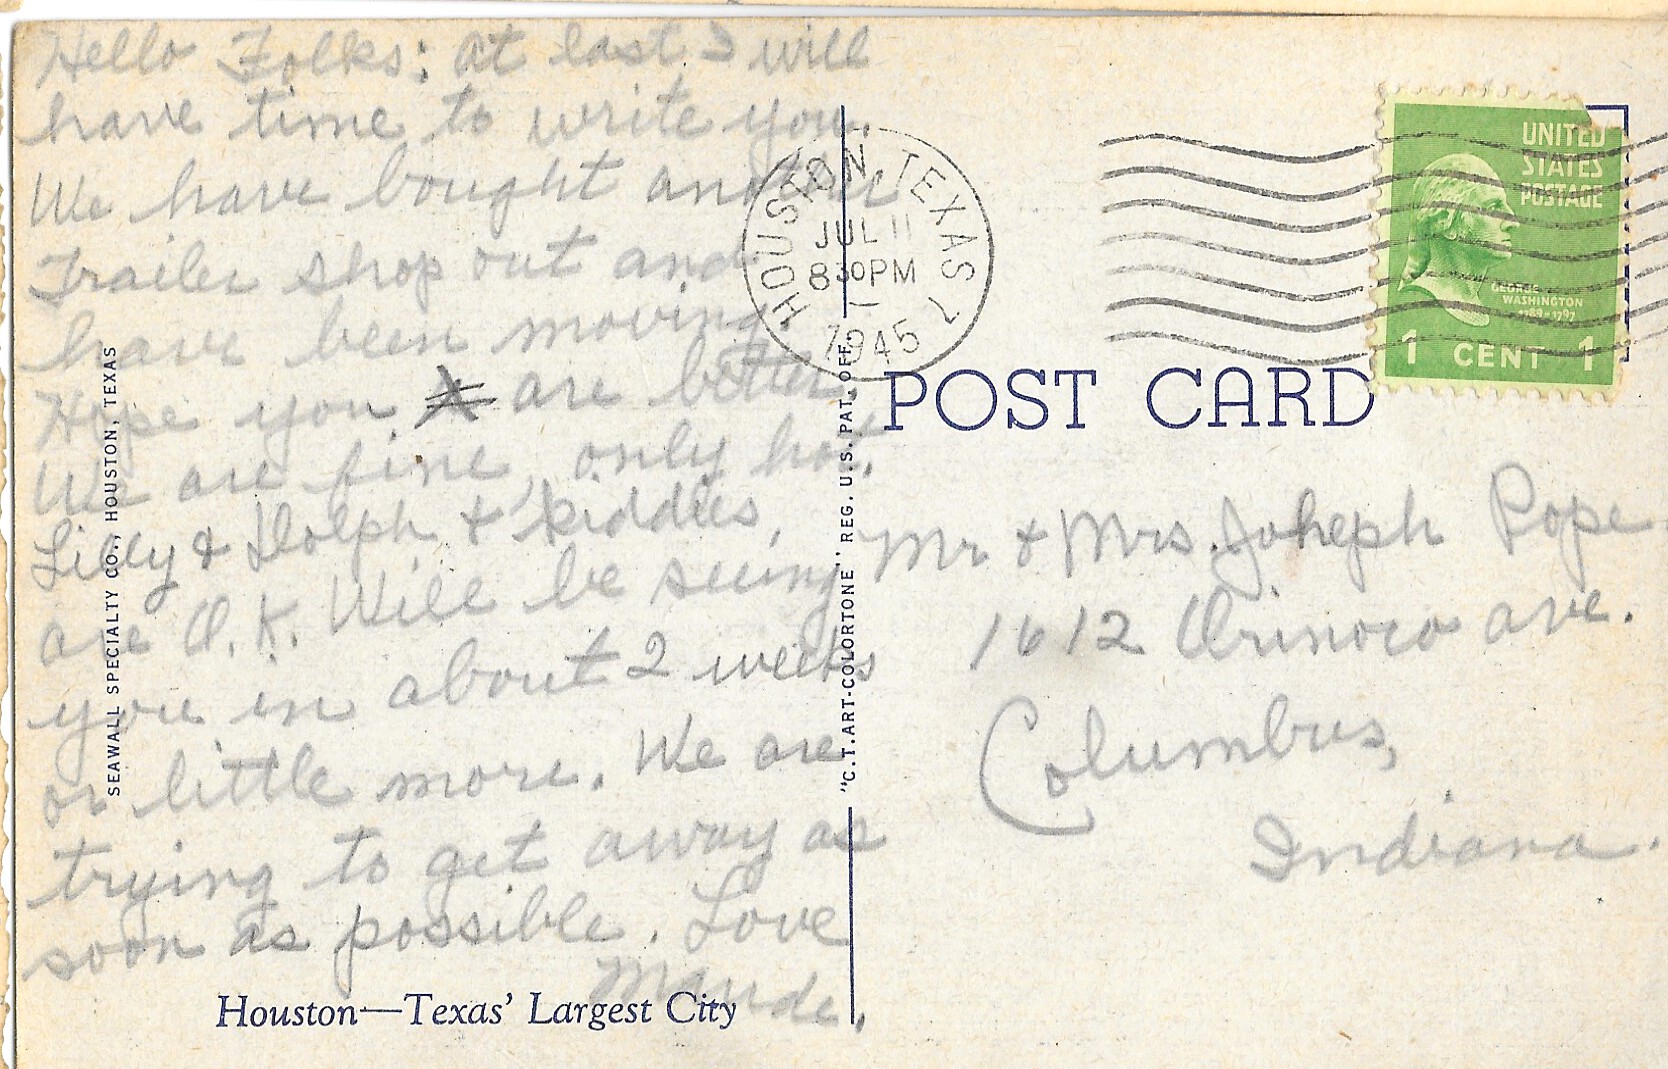 Hello Folks: at last I will
have time to write you.
We have bought another
Trailer shop out and
have been moving.
Hope you are better.
We are fine, only hot.
Lilly & Dolph & kiddies,
are O.K. Will be seeing
you in about 2 weeks
or little more. We are
trying to get away as
soon as possible. Love
Maude.
Houston—Texas' Largest City
SEAWALL SPECIALTY CO., HOUSTON, TEXAS
"C.T.ART-COLORTONE" REG. U.S. PAT. OFF.
HOUSTON, TEXAS
JUL 11
8 30 PM
1945
UNITED
STATES
POSTAGE
GEORGE
WASHINGTON
1789-1797
1 CENT 1
POST CARD
Mr & Mrs. Joheph Pope
1612 Orinoco ave.
Columbus,
Indiana.